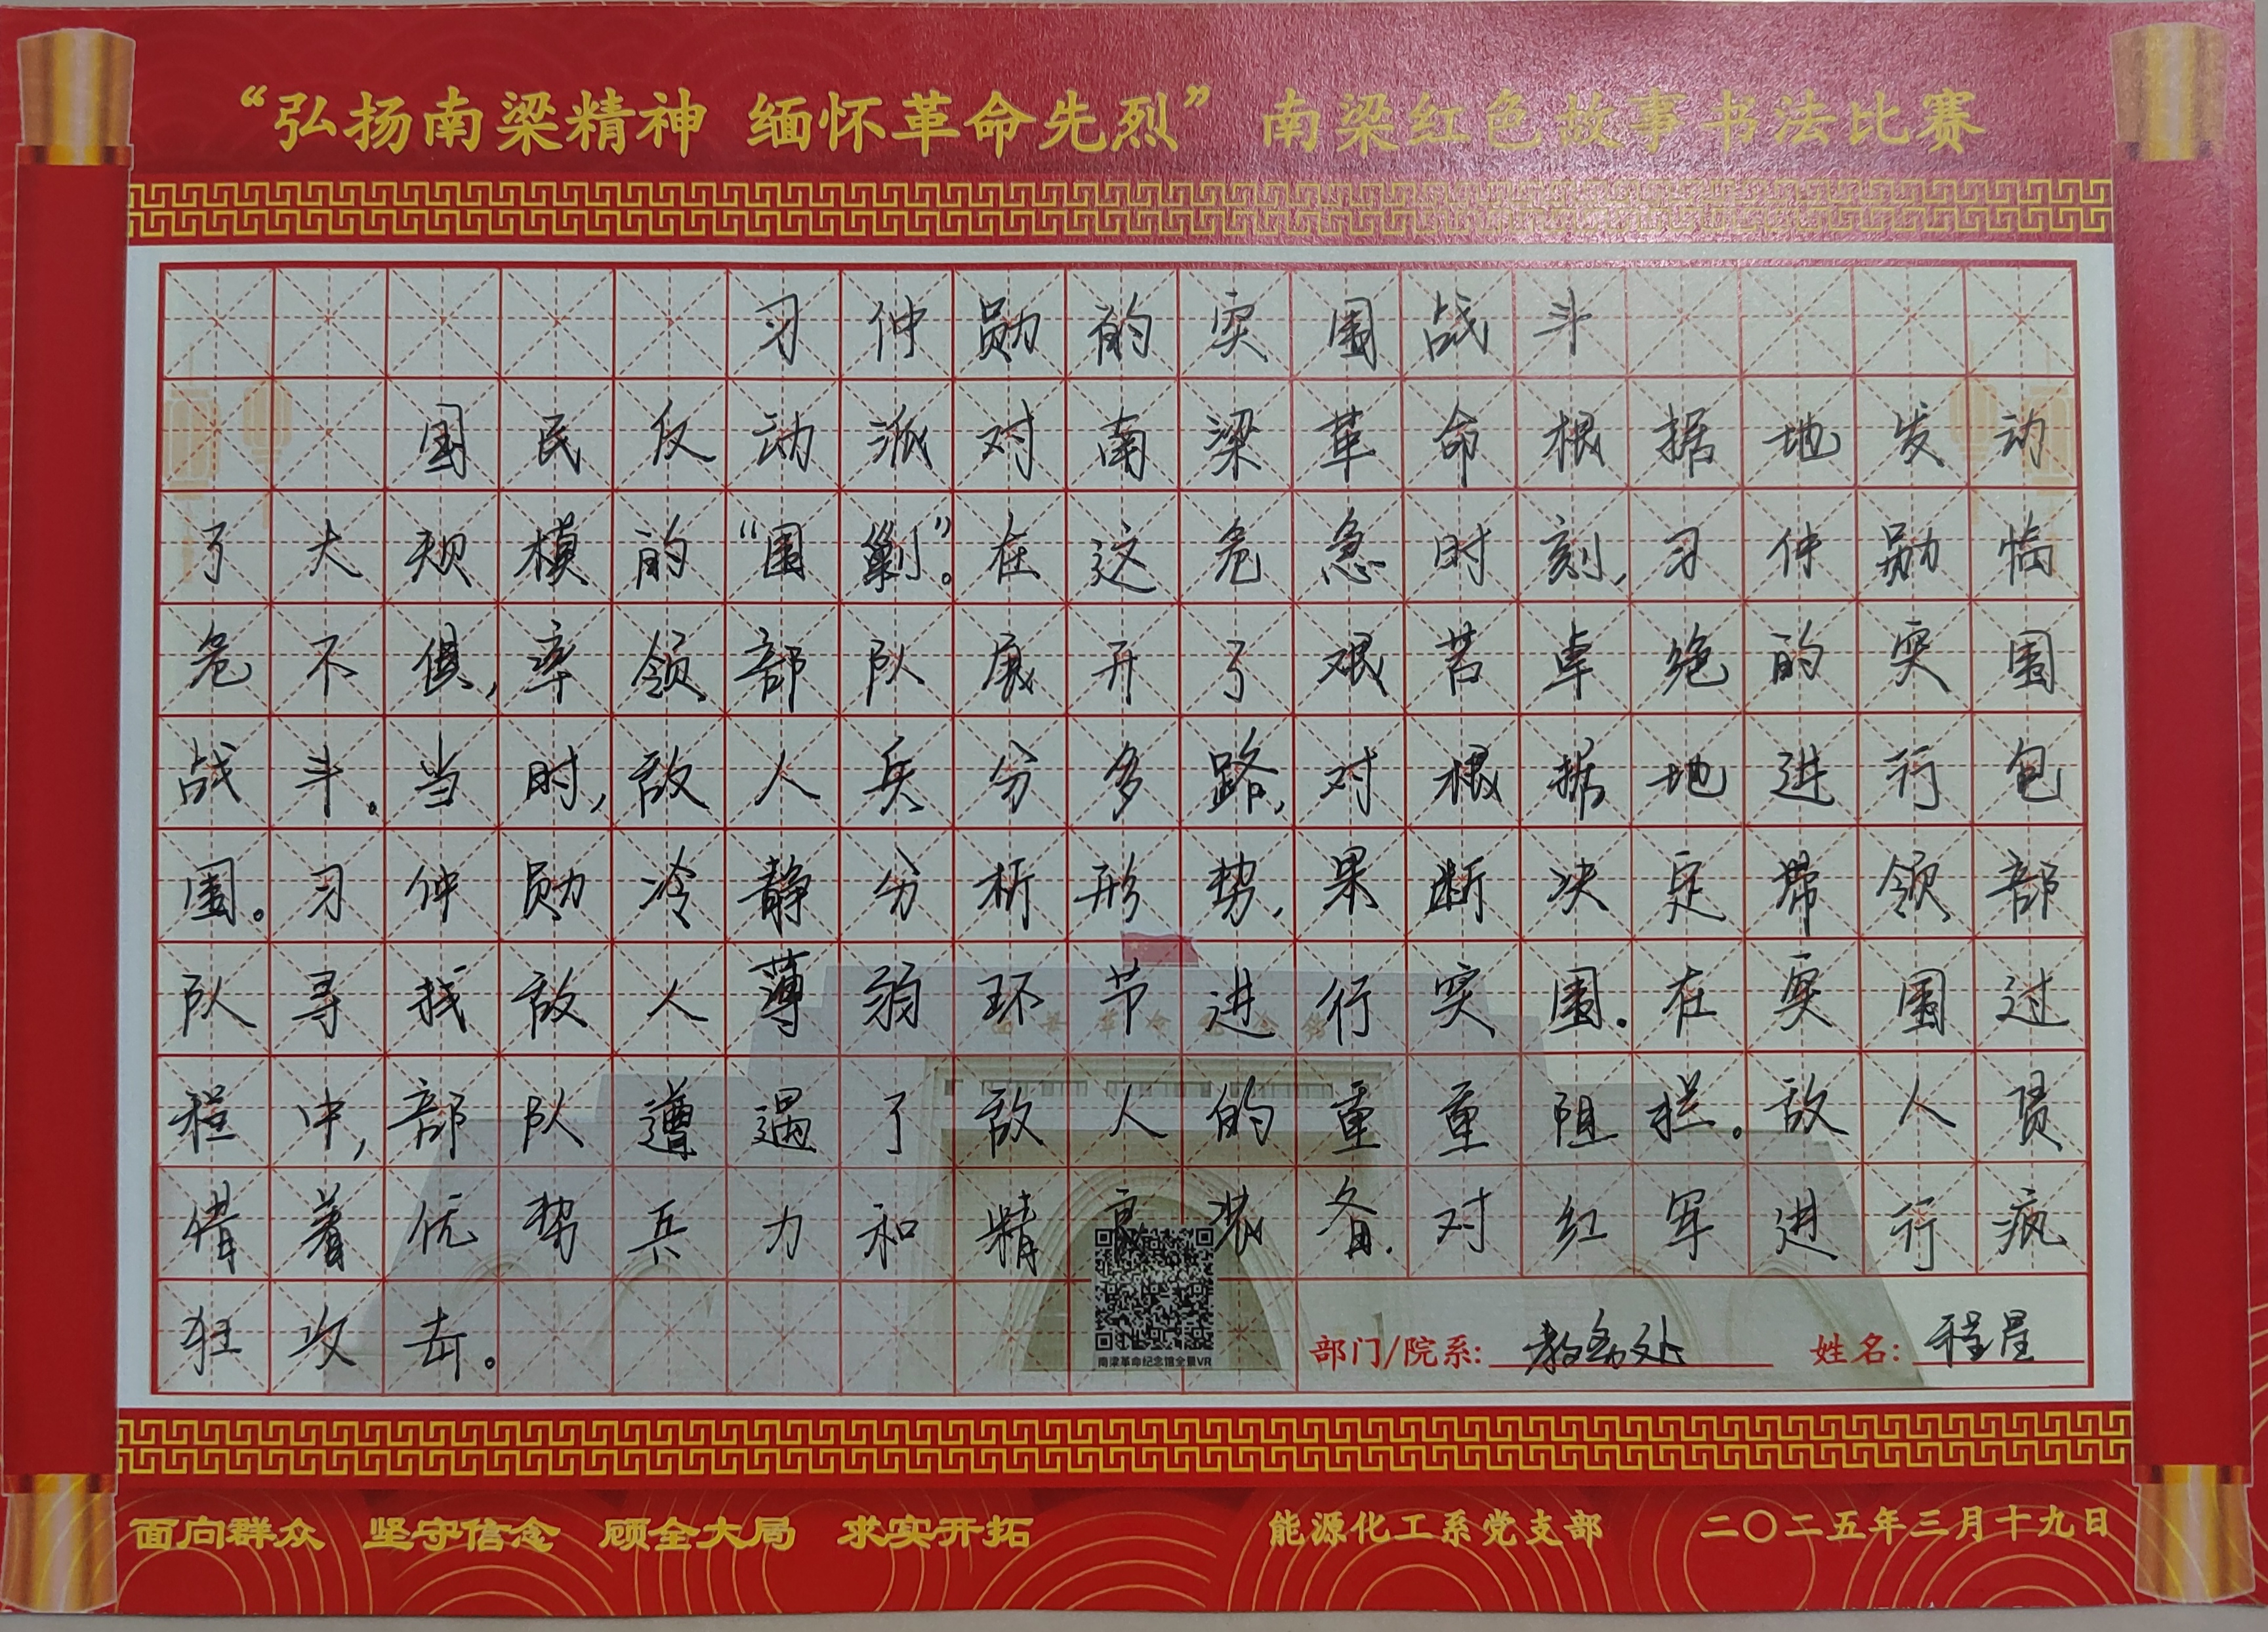 “弘扬南梁精神 缅怀革命先烈”南梁红色故事书法比赛
习仲勋的突围战斗
国民反动派对南梁革命根据地发动
了大规模的“围剿”。在这危急时刻,习仲勋临
危不惧,率领部队展开了艰苦卓绝的突围
战斗。当时,敌人兵分多路,对根据地进行包
围。习仲勋冷静分析形势,果断决定带领部
队寻找敌人薄弱环节进行突围。在突围过
程中,部队遭遇了敌人的重重阻拦。敌人凭
借着优势兵力和精良装备,对红军进行疯
狂攻击。
南梁革命纪念馆
南梁革命纪念馆全景VR
部门/院系:教务处 姓名:程星
面向群众 坚守信念 顾全大局 求实开拓 能源化工系党支部 二〇二五年三月十九日